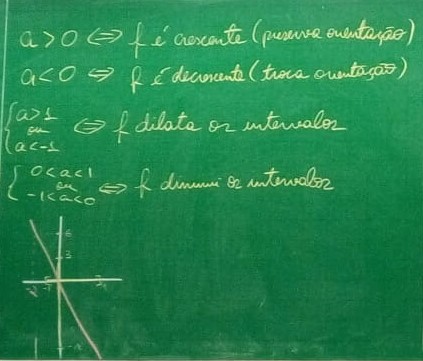 a > 0 ⇔ f é crescente (preserva orientação)
a < 0 ⇔ f é decrescente (troca orientação)
{ a > 1 ou a < -1 ⇔ f dilata os intervalos
{ 0 < a < 1 ou -1 < a < 0 ⇔ f diminui os intervalos
6
3